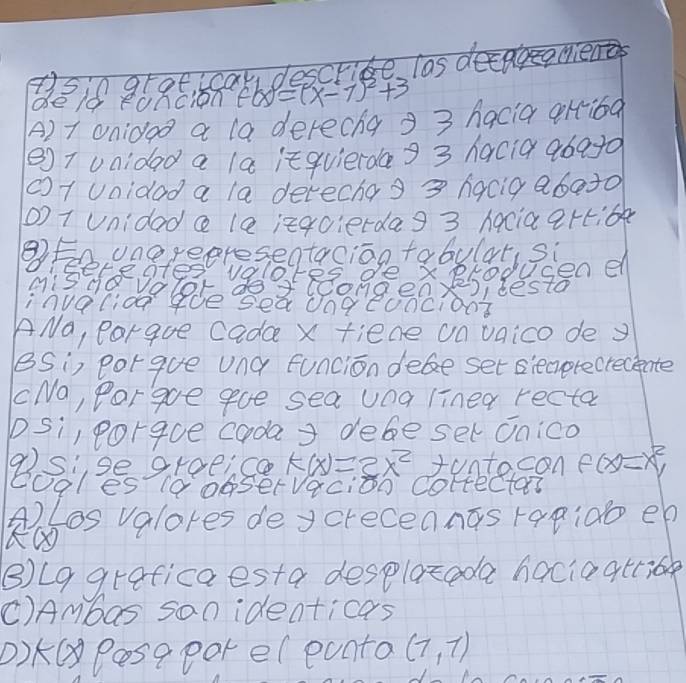 7) sin graficar, describe las desplazamientos
de la función f(x)=(x-1)²+3
A) 1 unidad a la derecha y 3 hacia arriba
B) 1 unidad a la izquierda y 3 hacia abajo
C) 1 unidad a la derecha y 3 hacia abajo
D) 1 unidad a la izquierda y 3 hacia arriba
8) En una representación tabular, si
diferentes valores de x producen el
mismo valor de y (como en x²), ¿esto
invalida que sea una función?
A No, porque cada x tiene un unico de y
B Si, porque una función debe ser siempre creciente
C No, porque que sea una linea recta
D Si, porque cada y debe ser único
9) Si se grafica K(x)=2x² junto con f(x)=x²,
Cual es la observación correcta?
A) Los valores de y crecen más rapido en
K(x)
B) La grafica esta desplazada hacia arriba
C) Ambas son identicas
D) K(x) Pasa por el punto (1,1)